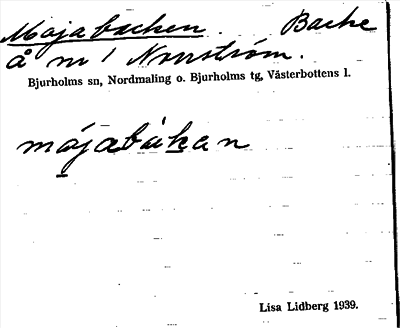 Majabacken. Backe
å m 1 Norrström.
Bjurholms sn, Nordmaling o. Bjurholms tg, Västerbottens l.
májabàkan
Lisa Lidberg 1939.